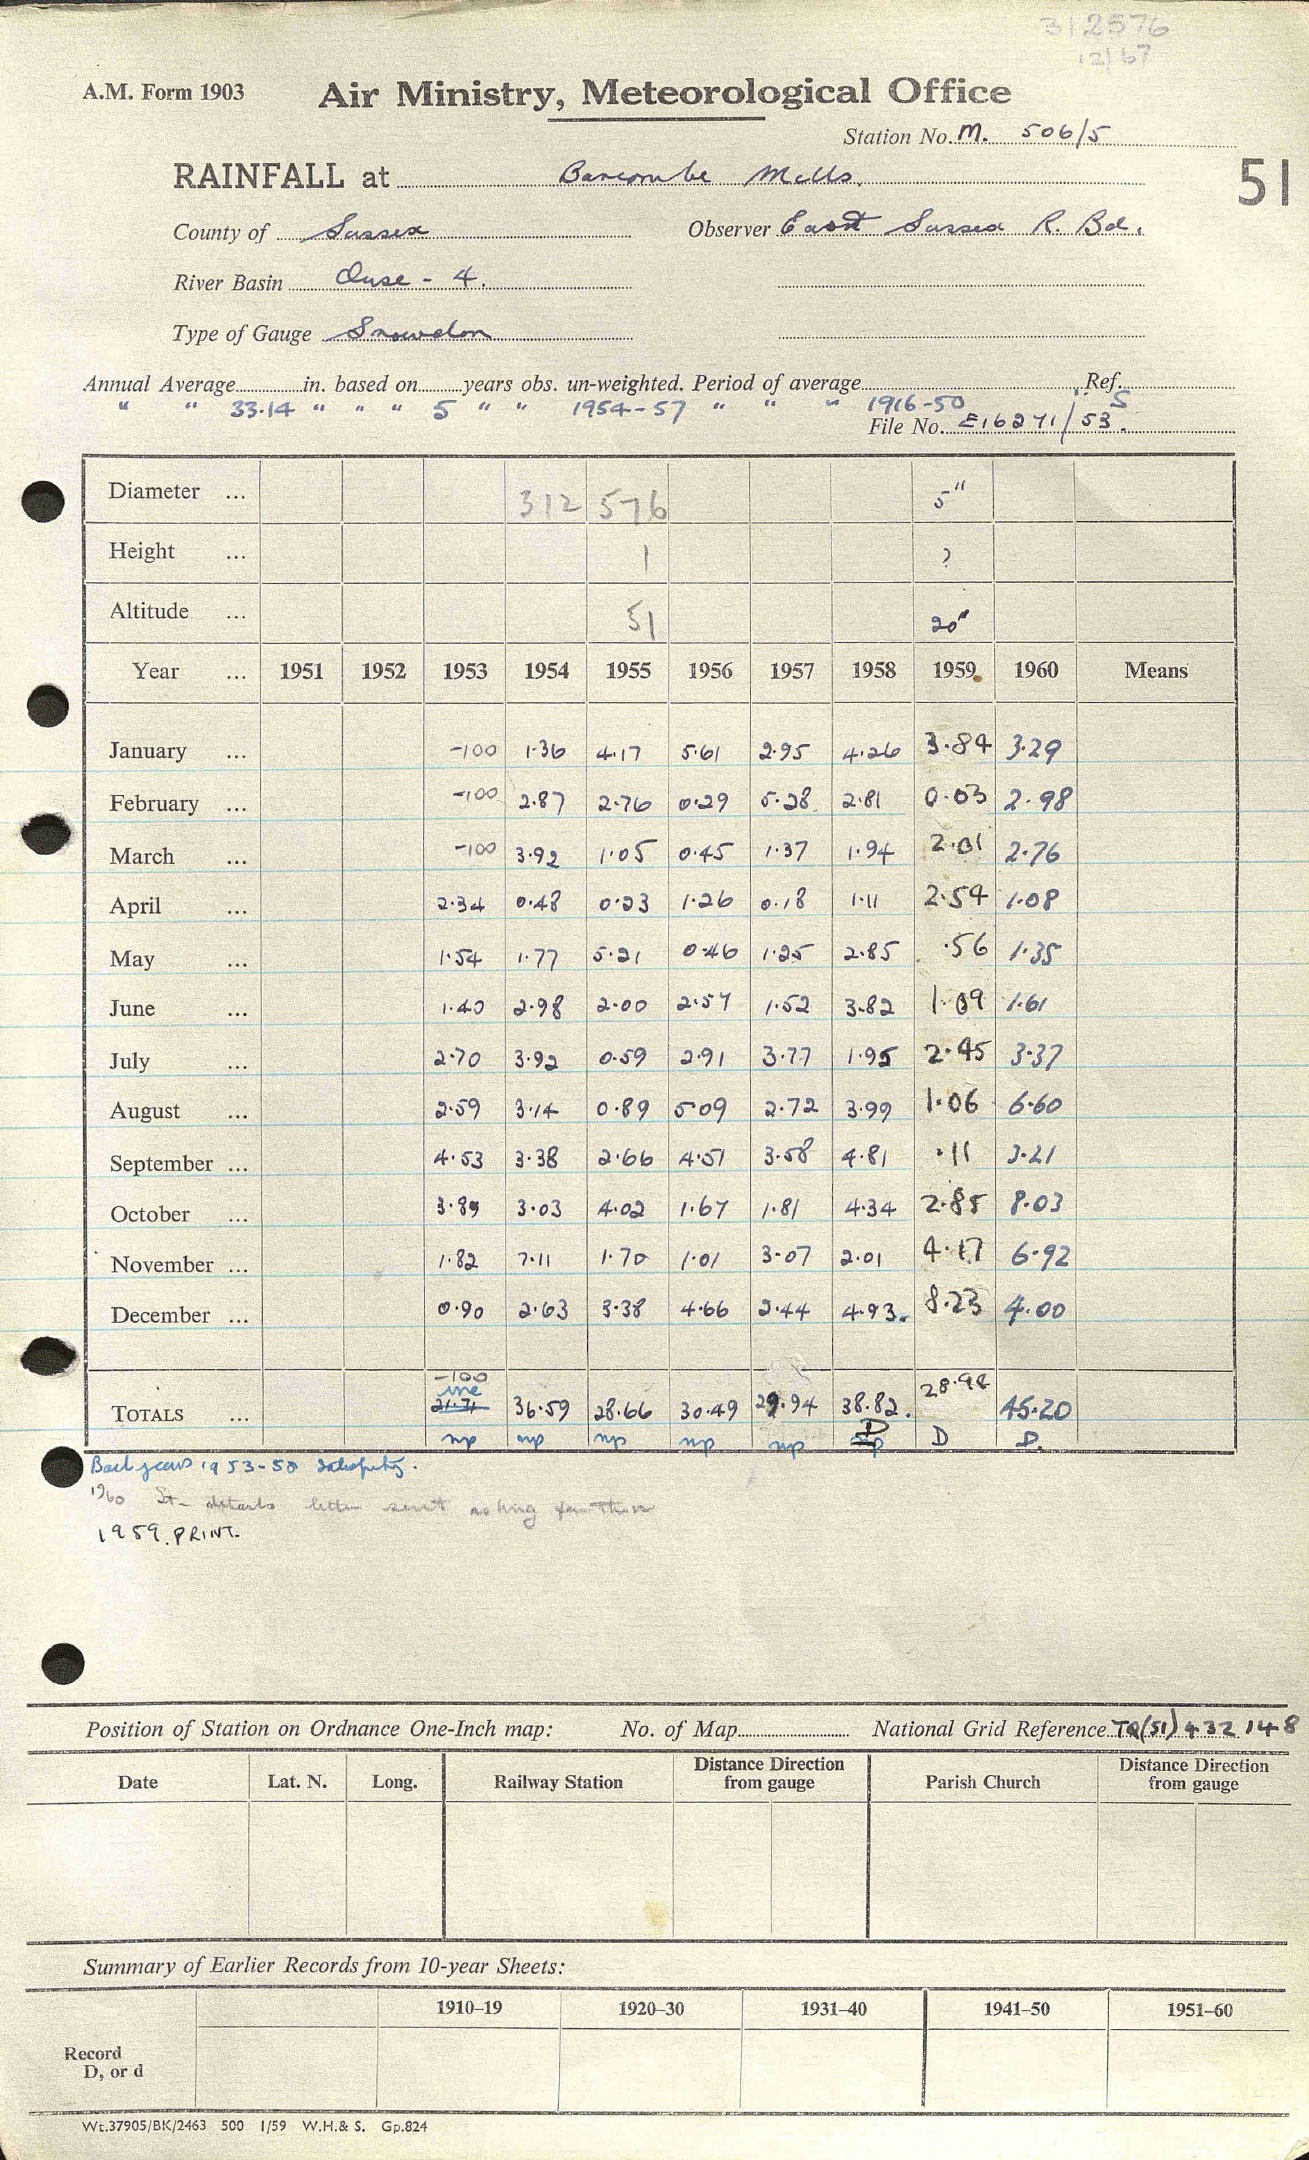 312576
12/67
A.M. Form 1903 Air Ministry, Meteorological Office
Station No. M. 506/5
RAINFALL at Barcombe Mills. 51
County of Sussex Observer East Sussex R. Bd.
River Basin Ouse - 4.
Type of Gauge Snowdon
Annual Average in. based on years obs. un-weighted. Period of average Ref.
" " 33.14 " " " 5 " " 1954-57 " " " 1916-50 " S
File No. E16271/53.
Diameter ... 312 576 5"
Height ... 1 ?
Altitude ... 51 20"
Year ... 1951 1952 1953 1954 1955 1956 1957 1958 1959 1960 Means
January ... -100 1.36 4.17 5.61 2.95 4.26 3.84 3.29
February ... -100 2.87 2.76 0.29 5.28 2.81 0.03 2.98
March ... -100 3.92 1.05 0.45 1.37 1.94 2.01 2.76
April ... 2.34 0.48 0.23 1.26 0.18 1.11 2.54 1.08
May ... 1.54 1.77 5.21 0.46 1.25 2.85 .56 1.35
June ... 1.40 2.98 2.00 2.57 1.52 3.82 1.09 1.61
July ... 2.70 3.92 0.59 2.91 3.77 1.95 2.45 3.37
August ... 2.59 3.14 0.89 5.09 2.72 3.99 1.06 6.60
September ... 4.53 3.38 2.66 4.51 3.58 4.81 .11 3.21
October ... 3.89 3.03 4.02 1.67 1.81 4.34 2.85 8.03
November ... 1.82 7.11 1.70 1.01 3.07 2.01 4.17 6.92
December ... 0.90 2.63 3.38 4.66 2.44 4.93. 8.23 4.00
-100
inc
TOTALS ... 21.71 36.59 28.66 30.49 29.94 38.82. 28.94 45.20
np np np np np D D D.
Back years 1953-58 satisfactory.
1960 St- details letter sent asking for these
1959. PRINT.
Position of Station on Ordnance One-Inch map: No. of Map National Grid Reference TQ(51) 432 148
Date Lat. N. Long. Railway Station Distance Direction from gauge Parish Church Distance Direction from gauge
Summary of Earlier Records from 10-year Sheets:
1910-19 1920-30 1931-40 1941-50 1951-60
Record
D, or d
Wt.37905/BK/2463 500 1/59 W.H.& S. Gp.824